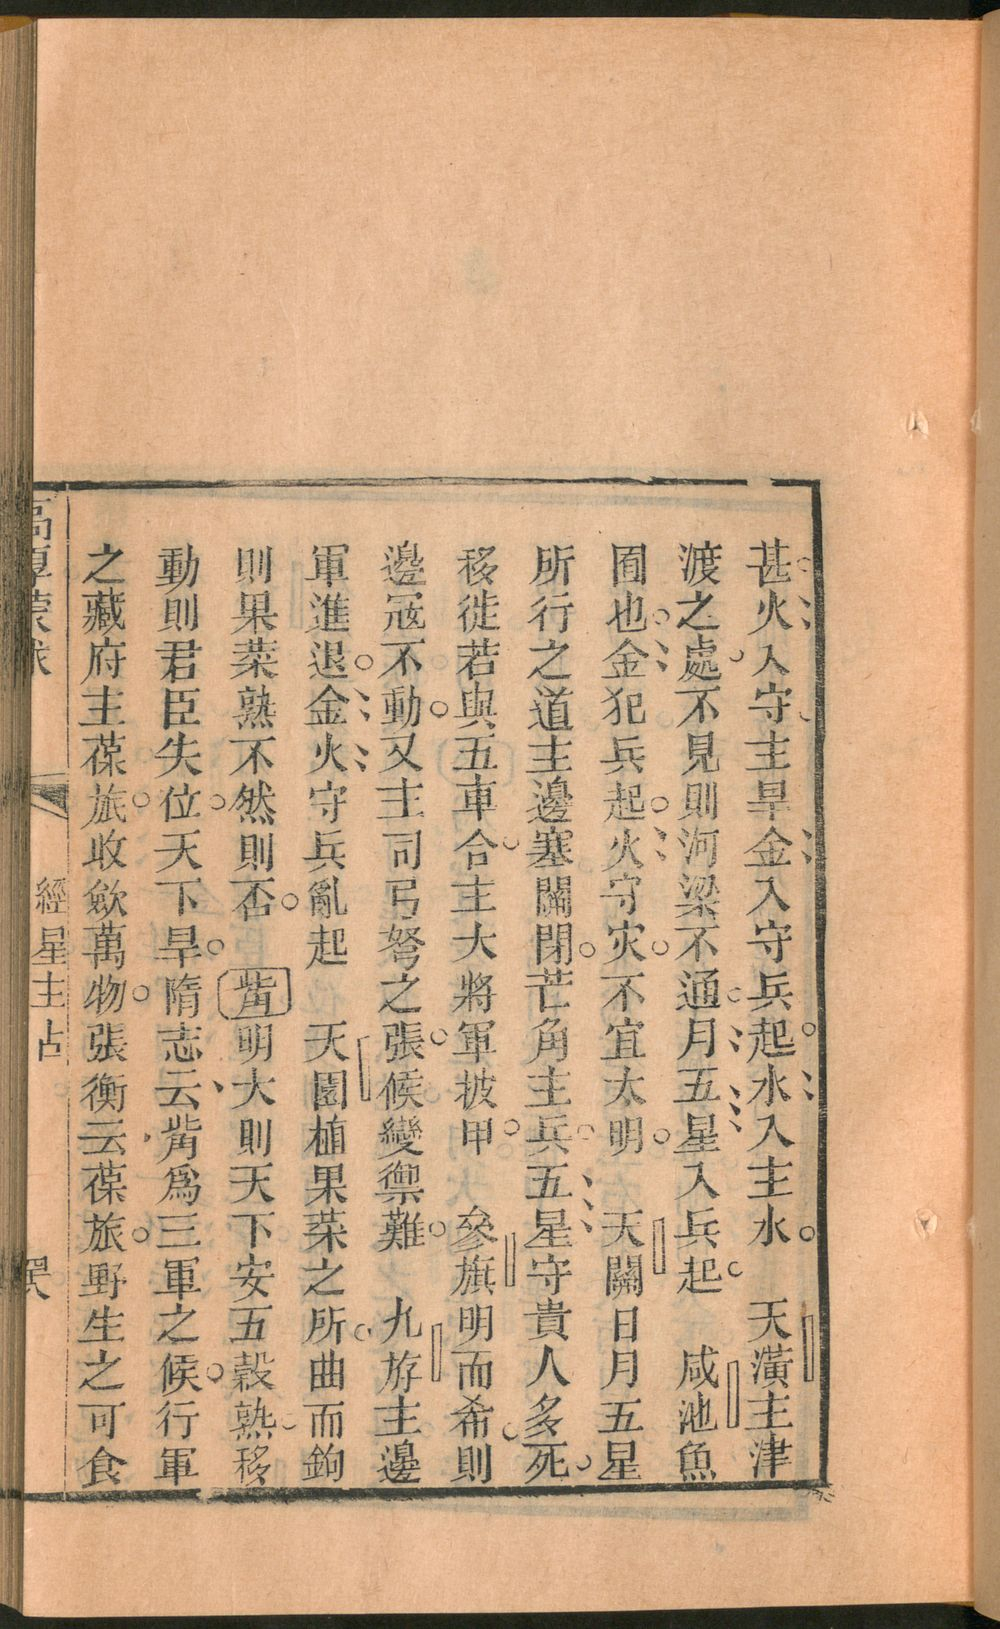 甚火入守主旱金入守兵起水入主水　天潢主津
渡之處不見則河梁不通月五星入兵起　咸池魚
囿也金犯兵起火守灾不宜太明　天關日月五星
所行之道主邊塞關閉芒角主兵五星守貴人多死
移徙若與五車合主大將軍披甲　參旗明而希則
邊寇不動又主司弓弩之張候變禦難　九斿主邊
軍進退金火守兵亂起　天園植果菜之所曲而鉤
則果菜熟不然則否　觜明大則天下安五穀熟移
動則君臣失位天下旱隋志云觜爲三軍之候行軍
之藏府主葆旅收歛萬物張衡云葆旅野生之可食
經星主占